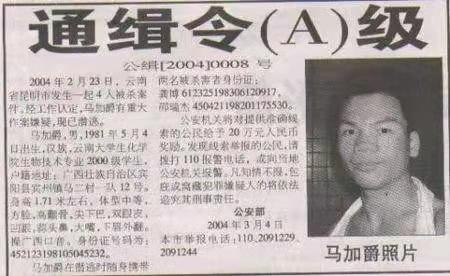 通缉令(A)级
公缉[2004]0008 号
2004年2月23日,云南
省昆明市发生一起4人被杀案
件,经工作认定,马加爵有重大
作案嫌疑,现已潜逃。
马加爵,男,1981年5月4
日出生,汉族,云南大学生化学
院生物技术专业2000级学生,
户籍地址:广西壮族自治区宾
阳县宾州镇马二村一队12号。
身高1.71米左右,体型中等,
方脸,高颧骨,尖下巴,双眼皮,
凹眼,蒜头鼻,大嘴,下唇外翻,
操广西口音。身份证号码为:
452123198105045232。
马加爵在潜逃时随身携带
两名被杀害者身份证:
龚博 612325198306120917,
邵瑞杰 450421198201175530。
公安机关将对提供准确线
索的公民给予20万元人民币
奖励。发现线索举报的公民,请
拨打110报警电话,或向当地
公安机关报警。凡知情不报、包
庇或窝藏犯罪嫌疑人的将依法
追究其刑事责任。
公安部
2004年3月4日
本市举报电话:110、2091229、
2091244
马加爵照片